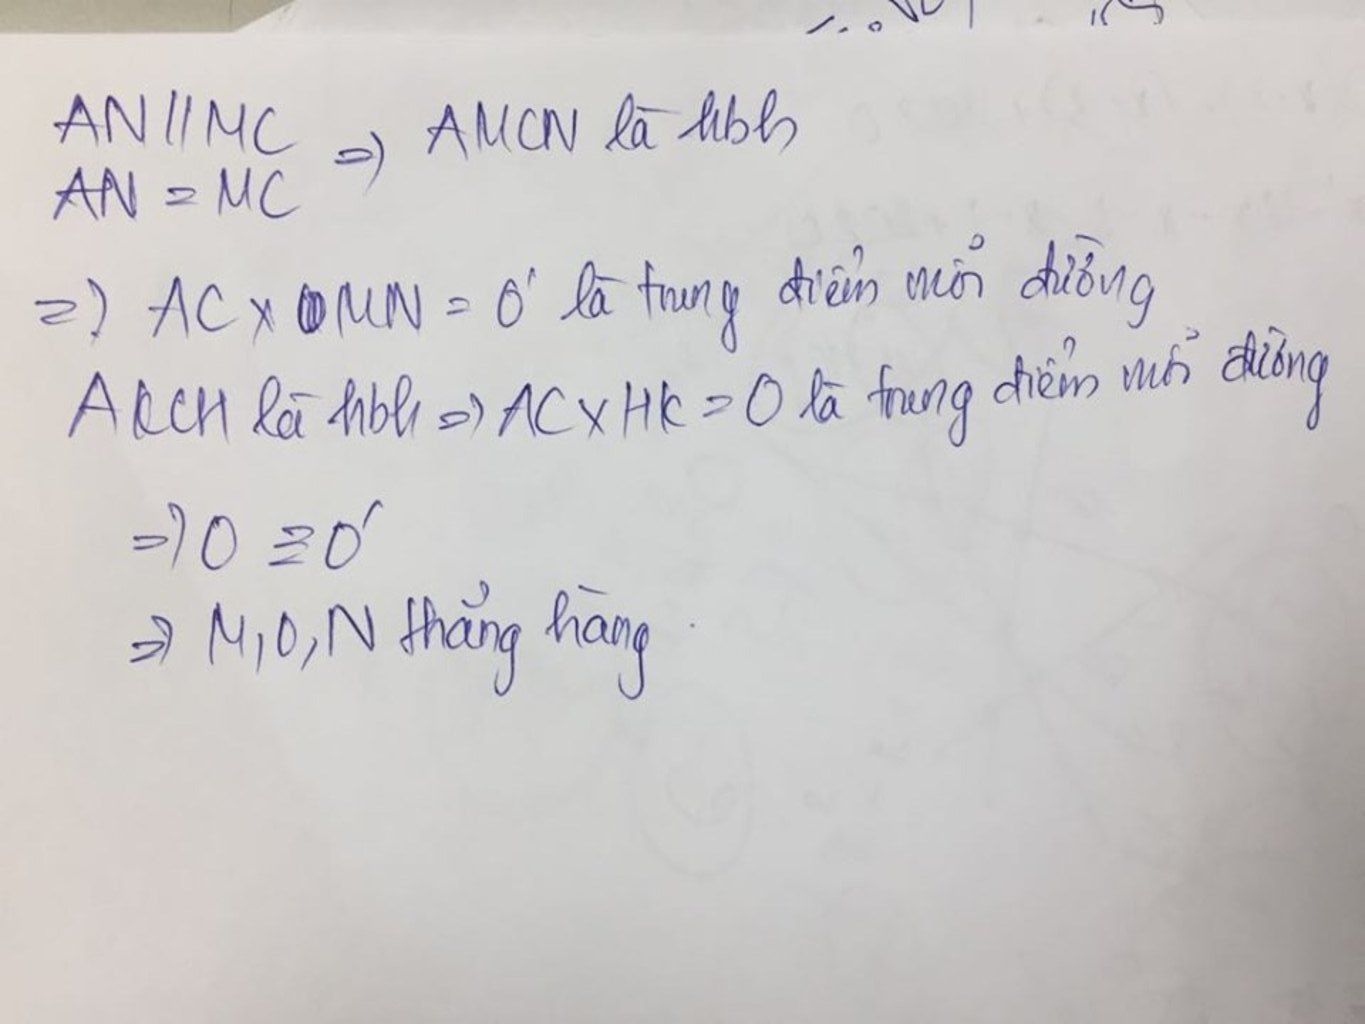 AN // MC
AN = MC
=> AMCN là hbh
=> AC x MN = O' là trung điểm mỗi đường
AKCH là hbh => AC x HK = O là trung điểm mỗi đường
=> O ≡ O'
=> M, O, N thẳng hàng.